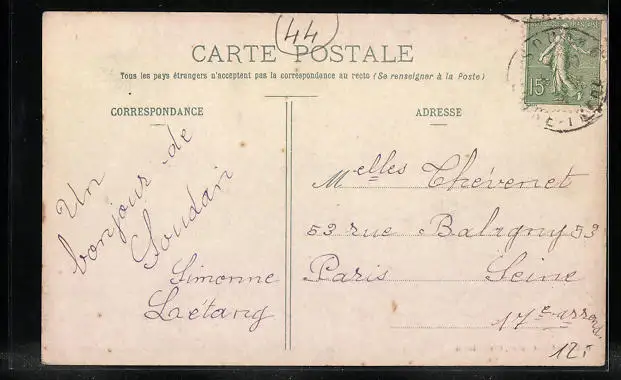 44
CARTE POSTALE
Tous les pays étrangers n'acceptent pas la correspondance au recto (Se renseigner à la Poste)
CORRESPONDANCE
ADRESSE
15c
Un
bonjour de
Soudan
Simonne
Létang
Melles Thévenet
53 rue Balagny 53
Paris Seine
17e arrond.